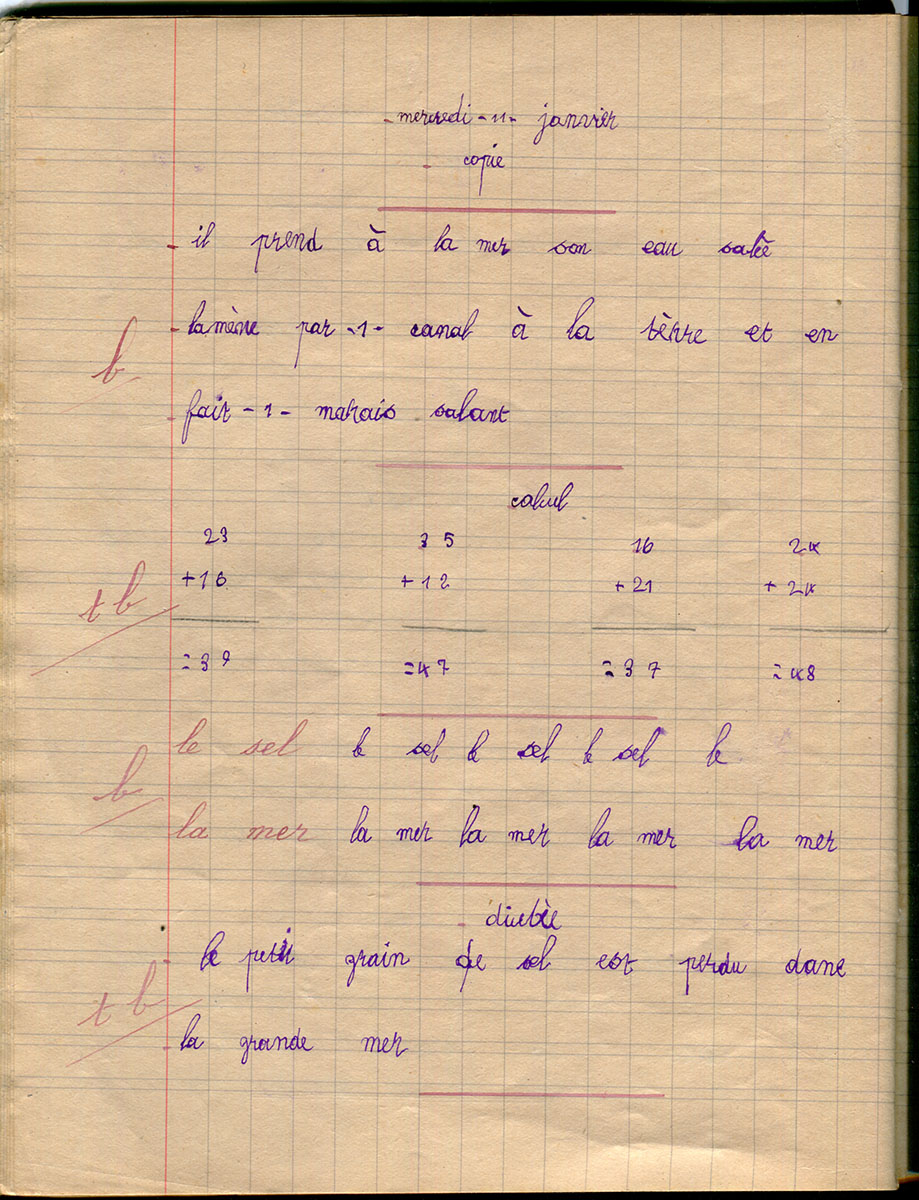 mercredi - 11 - janvier
copie
il prend à la mer son eau salèe
la mène par - 1 - canal à la tèrre et en
b
fait - 1 - marais salant
calcul
23 35 16 24
+16 +12 +21 +24
tb
=39 =47 =37 =48
le sel le sel le sel le sel le
b
la mer la mer la mer la mer la mer
dictèe
le petit grain de sel est perdu dans
tb
la grande mer